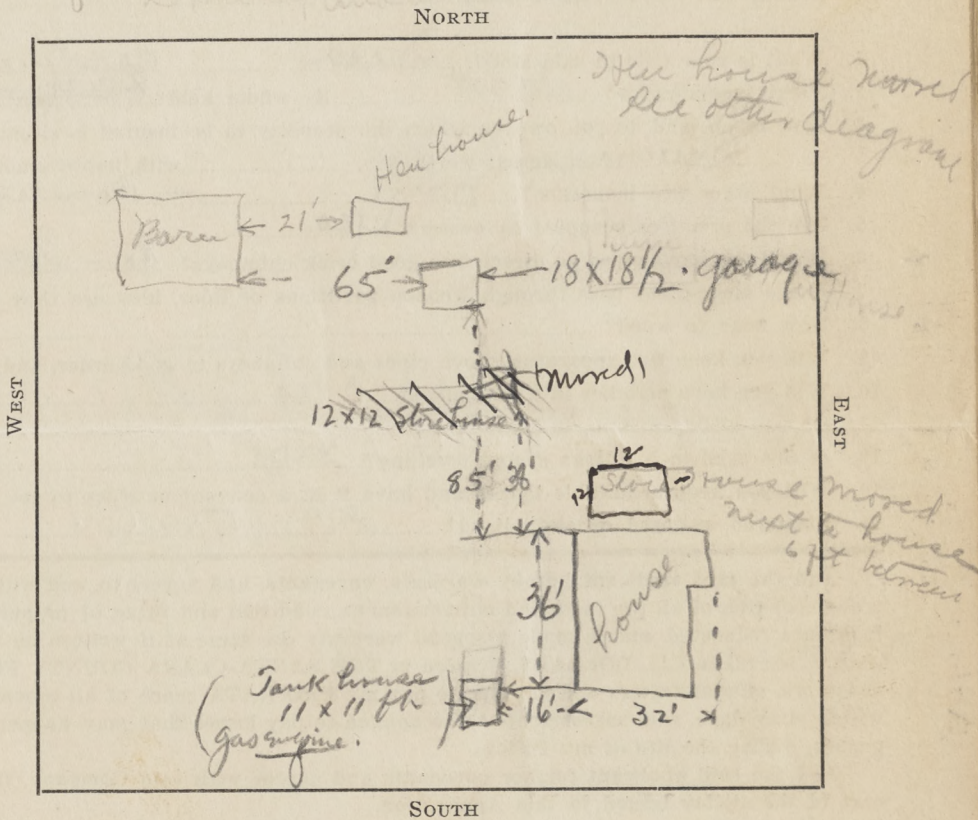 NORTH
Hen house moved
see other diagram
Hen house.
Barn
21'
65'
18X18 1/2. garage
House
(moved)
12x12 Store house
WEST
EAST
85'
36'
12
12
Store House moved
next to house
6 ft between
36'
house
Tank house
11 x 11 ft
gas engine.
16'
32'
SOUTH